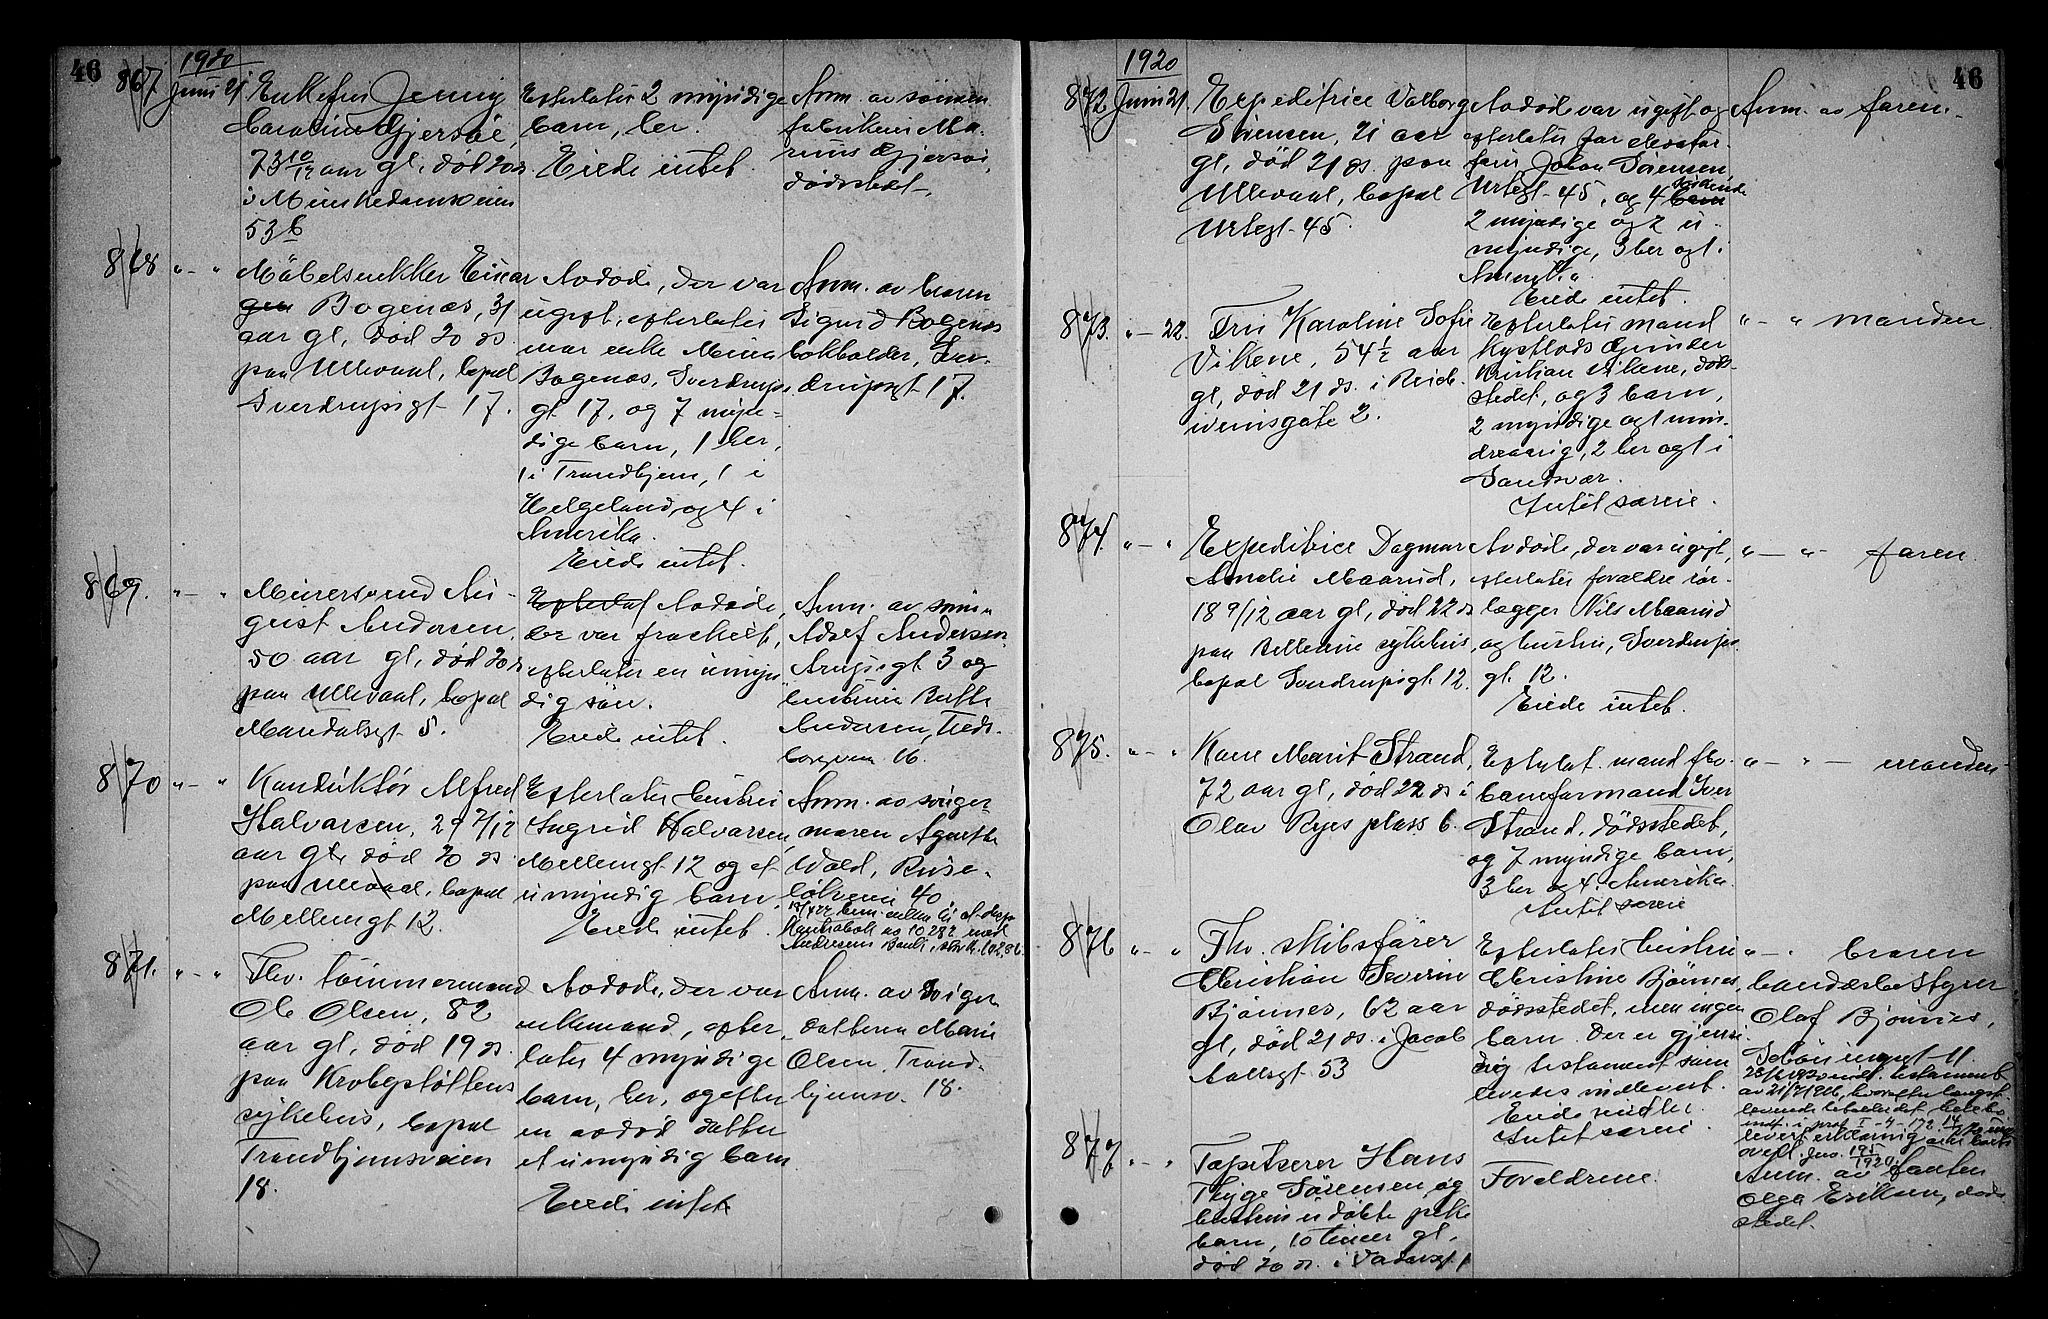 46
1920
867
Juni 21
Enkefru Jenny
Caroline Gjersøe,
73 10/12 aar gl, død 20 ds
i Munkedamsveien
53 b
Efterlater 2 myndige
barn, her.
Eiede intet.
Anm. av sønnen
fabrikeier Ma-
rius Gjersøe,
dødsstedet.
868
" — "
Møbelsnekker Einar
Bogenæs, 31
aar gl, død 20 ds
paa Ullevaal, bopæl
Sverdrupsgt 17.
Avdøde, der var
ugift, efterlater
mor enke
Bogenæs, Sverdrups
gt 17, og 7 myn-
dige barn, 1 her,
1 i Trondhjem, 1 i
Helgeland og 4 i
Amerika.
Eiede intet.
Anm. av broren
Sigurd Bogenæs
bokholder, Sver-
drupsgt 17.
869.
" — "
Murersvend Au-
gust Andersen,
50 aar gl, død 20 ds
paa Ullevaal, bopæl
Mandalsgt 5.
Efterlat Avdøde,
der var fraskilt,
efterlater en umyn
dig søn.
Eiede intet.
Anm. av sønn
Adolf Andersen
Arupsgt 3 og
hustruen Berthe
Andersen, Tveds-
16.
870
" — "
Konduktør Alfred
Halvorsen, 29 7/12
aar gl, død 20 ds
paa Ullevaal, bopæl
Møllergt 12.
Efterlater hustru
Ingrid Halvorsen,
Møllergt 12 og et
umyndig barn.
Eiede intet.
Anm. av sviger
moren Agnethe
Wold, Ruse-
løkveien 40
871.
" — "
Fhv. tømmermand
Ole Olsen, 82
aar gl, død 19 ds.
paa Krohgstøttens
sykehus, bopæl
Trondhjemsveien
18.
Avdøde, der var
enkemand, efter
later 4 myndige
barn, her, og efter
en avdød datter
et umyndig barn.
Eiede intet.
Anm. av sviger
datteren Marie
Olsen, Trond-
hjemsv. 18.
46
1920
872
Juni 21.
Expeditrice Valborg
Sørensen, 21 aar
gl, død 21 ds. paa
Ullevaal, bopæl
Urtegt 45.
Avdøde var ugift og
efterlater far
Johan Sørensen,
Urtegt 45, og 4 søskende
2 myndige og 2 u-
myndige, 3 her og 1 i
Amerika.
Eiede intet.
Anm. av faren.
873.
" — 22.
Fru Karoline Sofie
Vikene, 54 1/2 aar
gl, død 21 ds. i Reich-
weinsgate 2.
Efterlater mand
Kristian Vikene, døds-
stedet, og 3 barn,
2 myndige og 1 min-
dreaarig, 2 her og 1 i
Sandsvær.
Intet særeie.
" — " manden.
874.
" — "
Expeditrice Dagmar
Amalie Maarud,
18 9/12 aar gl, død 22 ds
paa sykehus,
bopæl Sverdrupsgt. 12.
Avdøde, der var ugift,
efterlater forældre rør-
lægger Nils Maarud
og hustru, Sverdrups
gt. 12.
Eiede intet.
" — " faren.
875.
" — "
Kone Marit Strand,
72 aar gl, død 22 ds i
Olav Ryes plass 6.
Efterlat. mand fhv.
baneformand Iver
Strand, dødsstedet,
og 7 myndige barn,
3 her og 4 i Amerika.
Intet særeie
" — " — manden
876
" — "
Fhv. skibsfører
Christian Severin
Bjønnes, 62 aar
gl, død 21 ds. i Jacob
Aallsgt 53
Efterlater hustru
Christine Bjønnes,
dødsstedet, men ingen
barn. Der er gjensi-
dig testament som
levedes indlevert.
Eiede midler.
Intet særeie.
" — " broren
landærbestyrer
Olaf Bjønnes,
Schøningsgt 11.
877
" — "
Tapetserer Hans
Thyge Sørensen og
hustrus udøpte pike
barn, 10 timer gl,
død 20 ds. i
Forældrene.
Anm. av tanten
Olga Eriksen, døds
stedet.